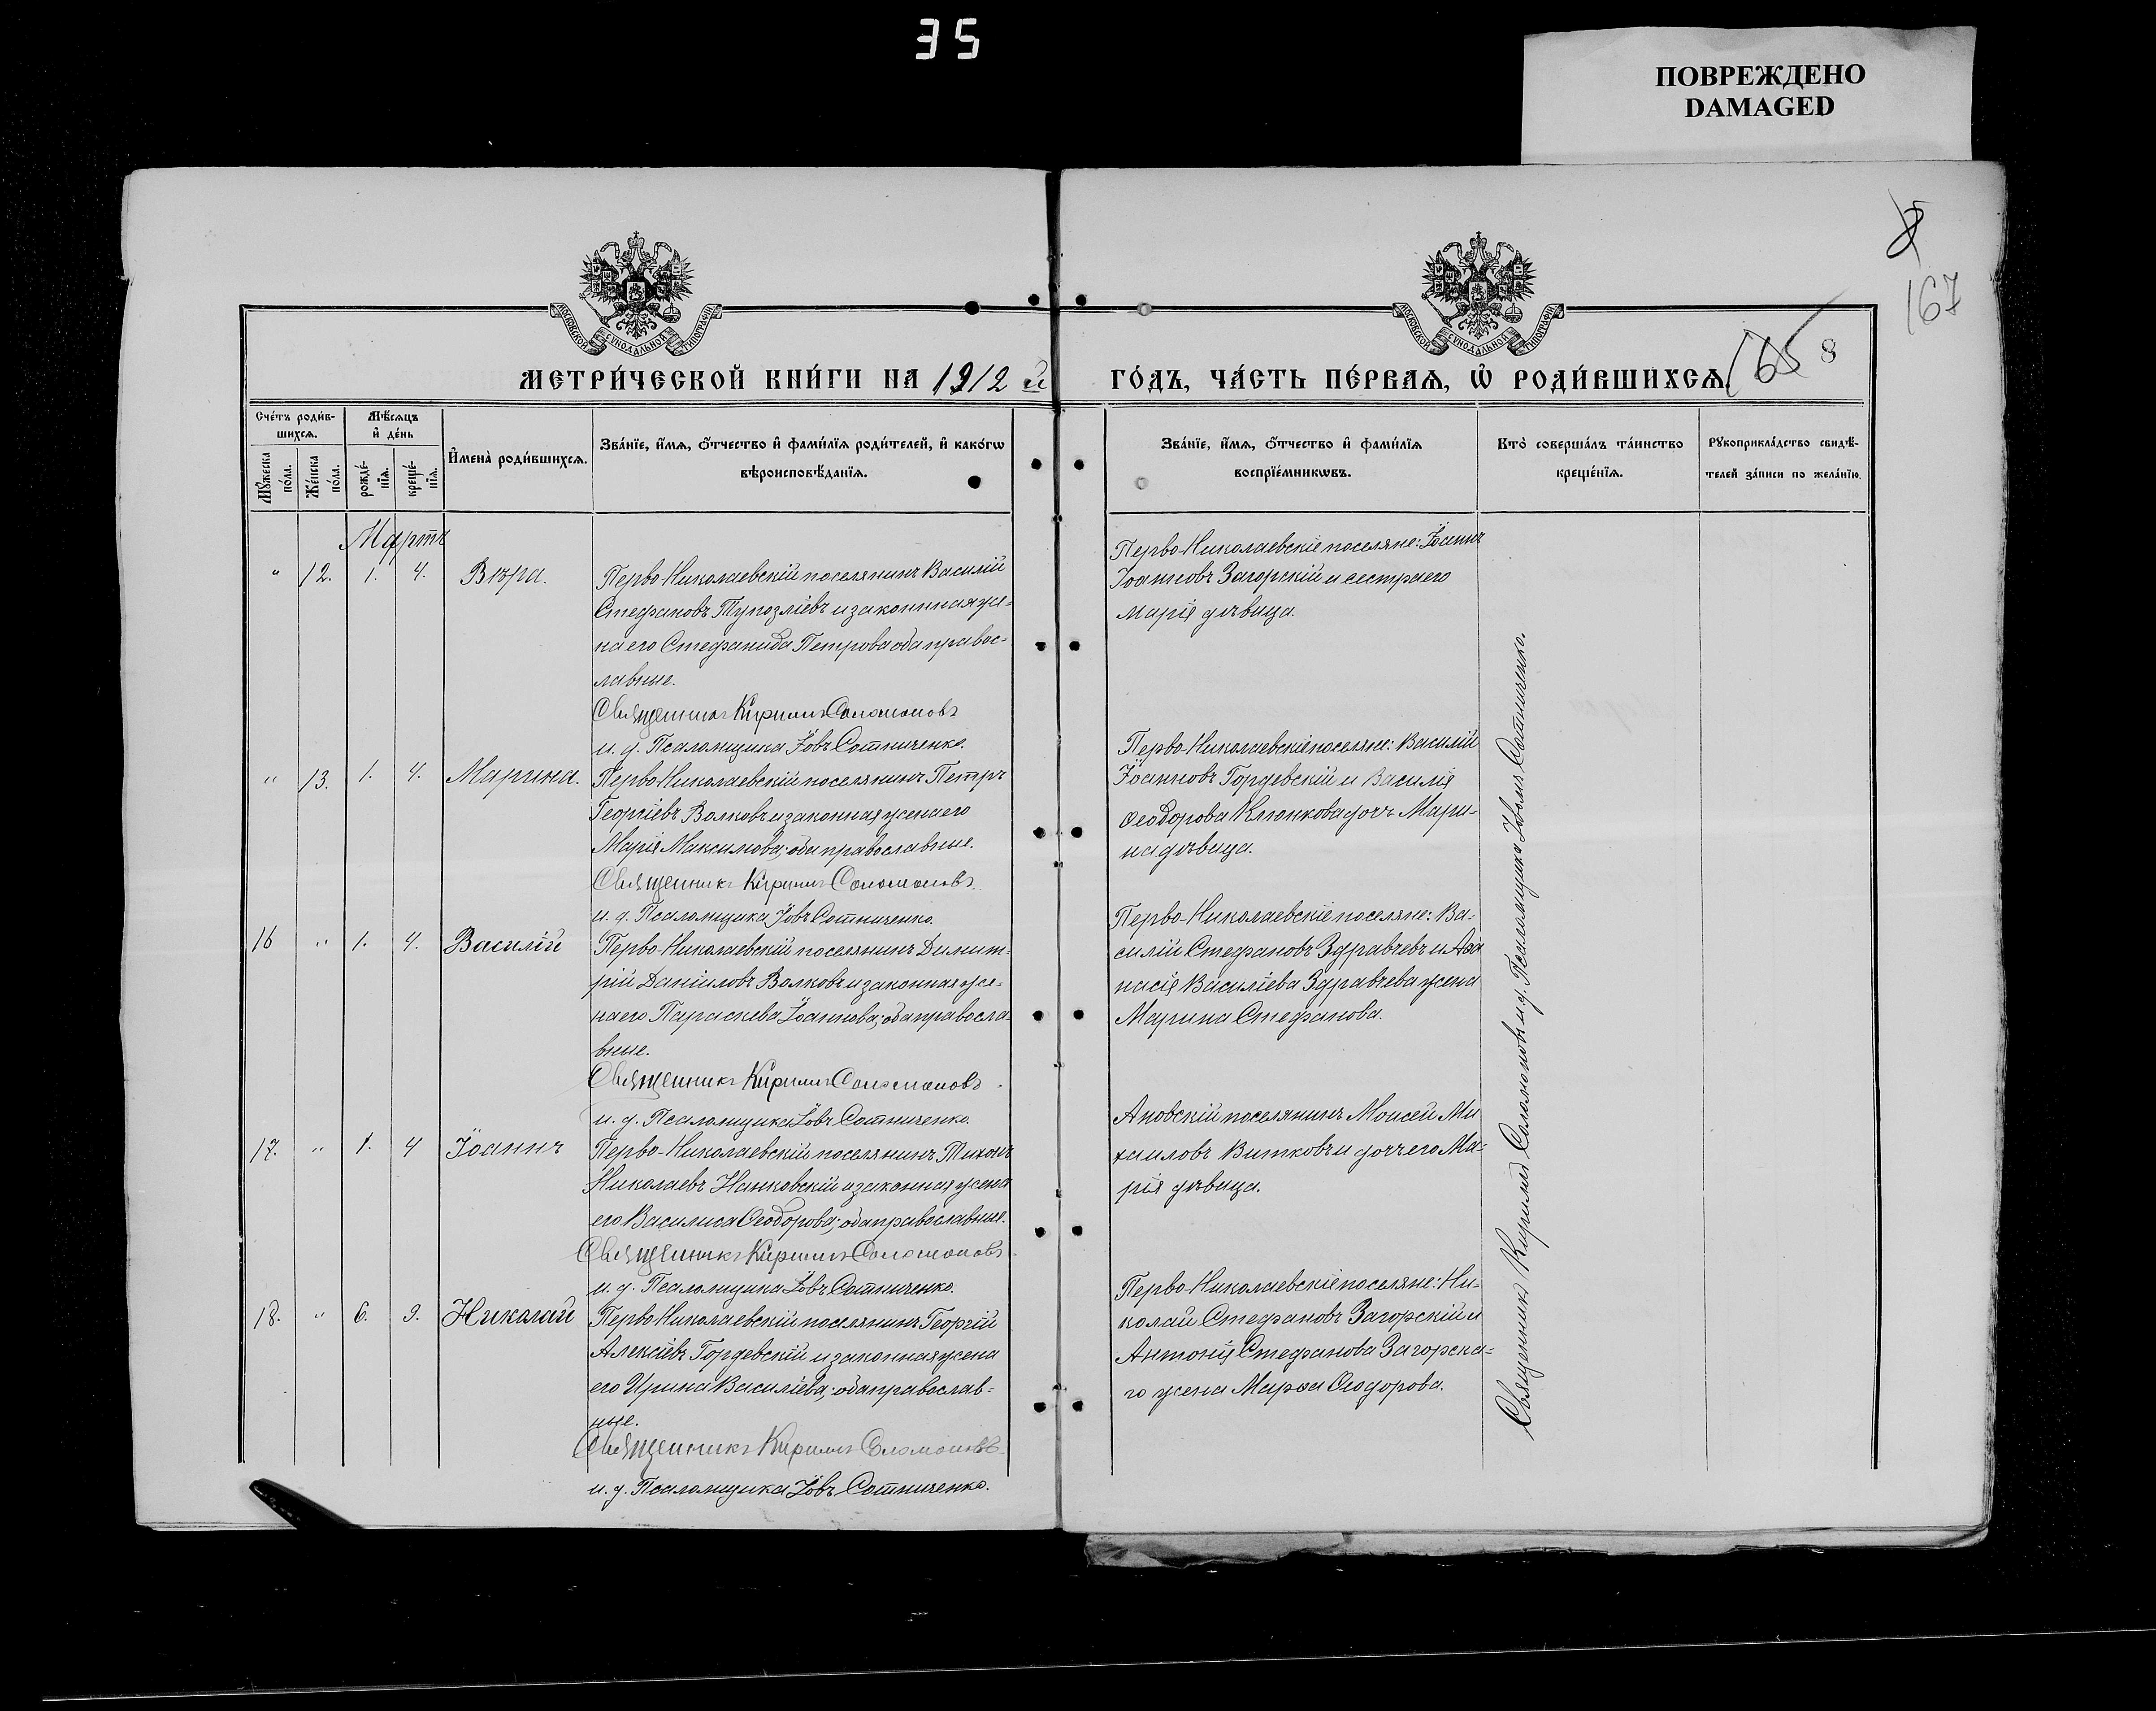 35
ПОВРЕЖДЕНО
DAMAGED
8
167
165 8
МОСКОВСКОЙ СѴНОДАЛЬНОЙ ТИПОГРАФІИ
МОСКОВСКОЙ СѴНОДАЛЬНОЙ ТИПОГРАФІИ
МЕТРИ́ЧЕСКОЙ КНИ́ГИ НА 1912 й ГО́ДЪ, ЧА́СТЬ ПЕ́РВАѦ, Ѡ҆ РОДИ́ВШИХСѦ.
Сче́тъ роди́в-
шихсѧ.
Мꙋ́жеска по́ла.
Же́нска по́ла.
Мѣ́сѧцъ
и҆ де́нь
рожде́-
нїѧ.
креще́-
нїѧ.
И҆мена̀ роди́вшихсѧ.
Зва́нїе, и҆́мѧ, ѻ҆́тчество и҆ фами́лїѧ роди́телей, и҆ како́гѡ
вѣроисповѣ́данїѧ.
Зва́нїе, и҆́мѧ, ѻ҆́тчество и҆ фами́лїѧ
воспрїе́мникѡвъ.
Кто̀ соверша́лъ та́инство
креще́нїѧ.
Рꙋкоприкла́дство свидѣ́-
телей за́писи по жела́нїю.
Мартъ
" 12. 1. 4. Вѣра.
Перво-Николаевскій поселянинъ Василій
Стефановъ Тупозліевъ и законная же-
на его Стефанида Петрова оба правос-
лавные.
Священникъ Кирилъ Соломоновъ
и. д. Псаломщика Іовъ Сотниченко.
Перво-Николаевскіе поселяне: Іоаннъ
Іоанновъ Загорскій и сестра его
Марія дѣвица.
" 13. 1. 4. Марина.
Перво-Николаевскій поселянинъ Петръ
Георгіевъ Волковъ и законная жена его
Марія Максимова; оба православные.
Священникъ Кирилъ Соломоновъ
и. д. Псаломщика Іовъ Сотниченко.
Перво-Николаевскіе поселяне: Василій
Іоанновъ Гордевскій и Василія
Ѳеодорова Клюнкова дочь Мари-
на дѣвица.
16 " 1. 4. Василій
Перво-Николаевскій поселянинъ Димит-
рій Даніиловъ Волковъ и законная же-
на его Параскева Іоаннова; оба правосла
вные.
Священникъ Кирилъ Соломоновъ
и. д. Псаломщика Іовъ Сотниченко.
Перво-Николаевскіе поселяне: Ва-
силій Стефановъ Здравчевъ и Аѳа
насія Василіева Здравчева жена
Марина Стефанова.
17. " 1. 4 Іоаннъ
Перво-Николаевскій поселянинъ Тихонъ
Николаевъ Нанковскій и законная жена
его Василиса Ѳеодорова; оба православные.
Священникъ Кирилъ Соломоновъ
и. д. Псаломщика Іовъ Сотниченко.
поселянинъ Моисей Ми
хаиловъ Витковъ и дочь его Ма-
рія дѣвица.
18. " 6. 9. Николай
Перво-Николаевскій поселянинъ Георгій
Алексіевъ Гордевскій и законная жена
его Ирина Василіева; оба православ-
ные.
Священникъ Кирилъ Соломоновъ
и. д. Псаломщика Іовъ Сотниченко.
Перво-Николаевскіе поселяне: Ни-
колай Стефановъ Загорскій и
Антонія Стефанова Загорска-
го жена Марѳа Ѳеодорова.
Священникъ Кирилъ Соломоновъ и. д. Псаломщика Іовъ Сотниченко.